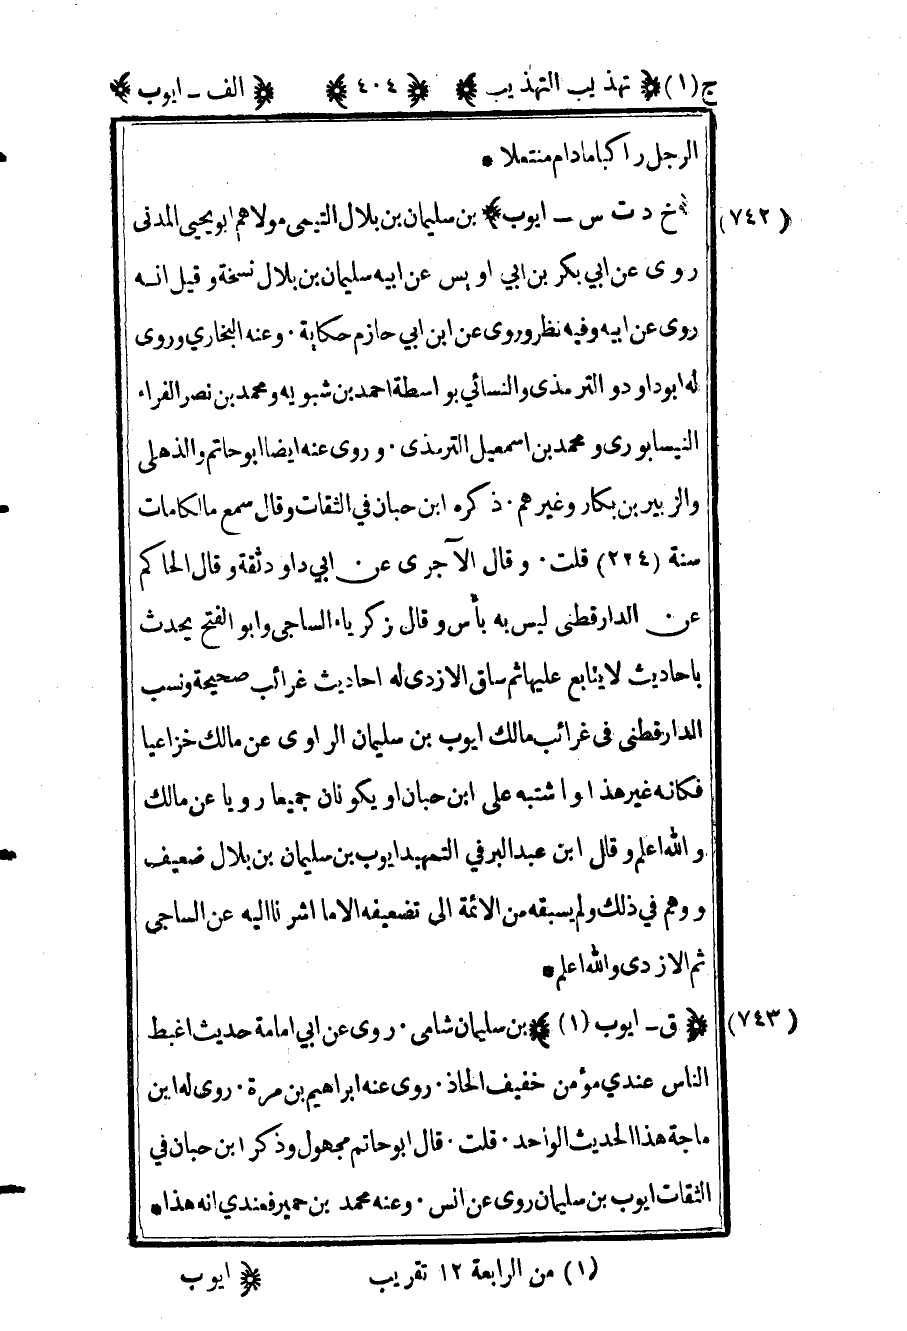 ج(١) ﴿ تهذيب التهذيب ﴾ ﴿ ٤٠٤ ﴾ ﴿ الف ـ ايوب ﴾
الرجل راكبا مادام منتعلا *
(٧٤٢) ﴿ خ د ت س ـ ايوب ﴾ بن سليمان بن بلال التيمى مولاهم ابو يحيى المدنى
روى عن ابي بكر بن ابي اويس عن ابيه سليمان بن بلال نسخة وقيل انه
روى عن ابيه وفيه نظر وروى عن ابن ابي حازم حكاية · وعنه البخاري وروى
له ابو داود والترمذى والنسائي بواسطة احمد بن شبويه ومحمد بن نصر الفراء
النيسابورى و محمد بن اسمعيل الترمذى · وروى عنه ايضا ابو حاتم والذهلى
والزبير بن بكار وغيرهم · ذكره ابن حبان في الثقات وقال سمع مالكا مات
سنة (٢٢٤) قلت · وقال الآجرى عن ابي داود ثقة وقال الحاكم
عن الدارقطنى ليس به بأس وقال زكرياء الساجى وابو الفتح يحدث
باحاديث لا يتابع عليها ثم ساق الازدى له احاديث غرائب صحيحة ونسب
الدارقطنى فى غرائب مالك ايوب بن سليمان الراوى عن مالك خزاعيا
فكانه غير هذا او اشتبه على ابن حبان او يكونان جميعا رويا عن مالك
والله اعلم وقال ابن عبد البر في التمهيد ايوب بن سليمان بن بلال ضعيف
ووهم في ذلك ولم يسبقه من الائمة الى تضعيفه الا ما اشرنا اليه عن الساجى
ثم الازدى والله اعلم *
(٧٤٣) ﴿ ق ـ ايوب (١) ﴾ بن سليمان شامى · روى عن ابي امامة حديث اغبط
الناس عندي مؤمن خفيف الحاذ · روى عنه ابراهيم بن مرة · روى له ابن
ماجة هذا الحديث الواحد · قلت · قال ابو حاتم مجهول وذكر ابن حبان في
الثقات ايوب بن سليمان روى عن انس · وعنه محمد بن حمير فعندي انه هذا *
(١) من الرابعة ١٢ تقريب ﴿ ايوب